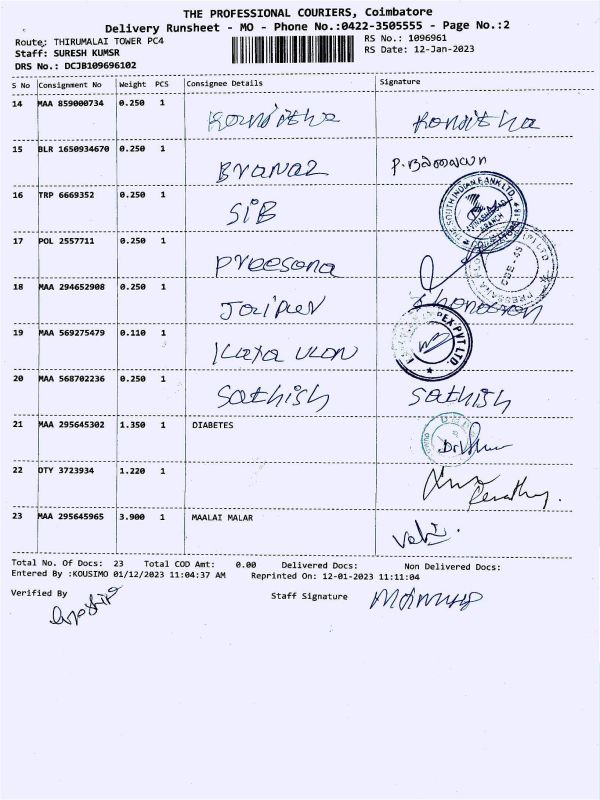 THE PROFESSIONAL COURIERS, Coimbatore
Delivery Runsheet - MO - Phone No.:0422-3505555 - Page No.:2
Route: THIRUMALAI TOWER PC4
RS No.: 1096961
Staff: SURESH KUMSR
RS Date: 12-Jan-2023
DRS No.: DCJB109696102
S No Consignment No Weight PCS Consignee Details Signature
14 MAA 859000734 0.250 1
15 BLR 1650934670 0.250 1
16 TRP 6669352 0.250 1 SIB
THE SOUTH INDIAN BANK LTD. BRANCH
17 POL 2557711 0.250 1 Preesana
18 MAA 294652908 0.250 1 Jaipur
19 MAA 569275479 0.110 1
PEX PVT LTD.
20 MAA 568702236 0.250 1 Sathish Sathish
21 MAA 295645302 1.350 1 DIABETES
22 DTY 3723934 1.220 1
23 MAA 295645965 3.900 1 MAALAI MALAR
Total No. Of Docs: 23 Total COD Amt: 0.00 Delivered Docs: Non Delivered Docs:
Entered By :KOUSIMO 01/12/2023 11:04:37 AM Reprinted On: 12-01-2023 11:11:04
Verified By Staff Signature